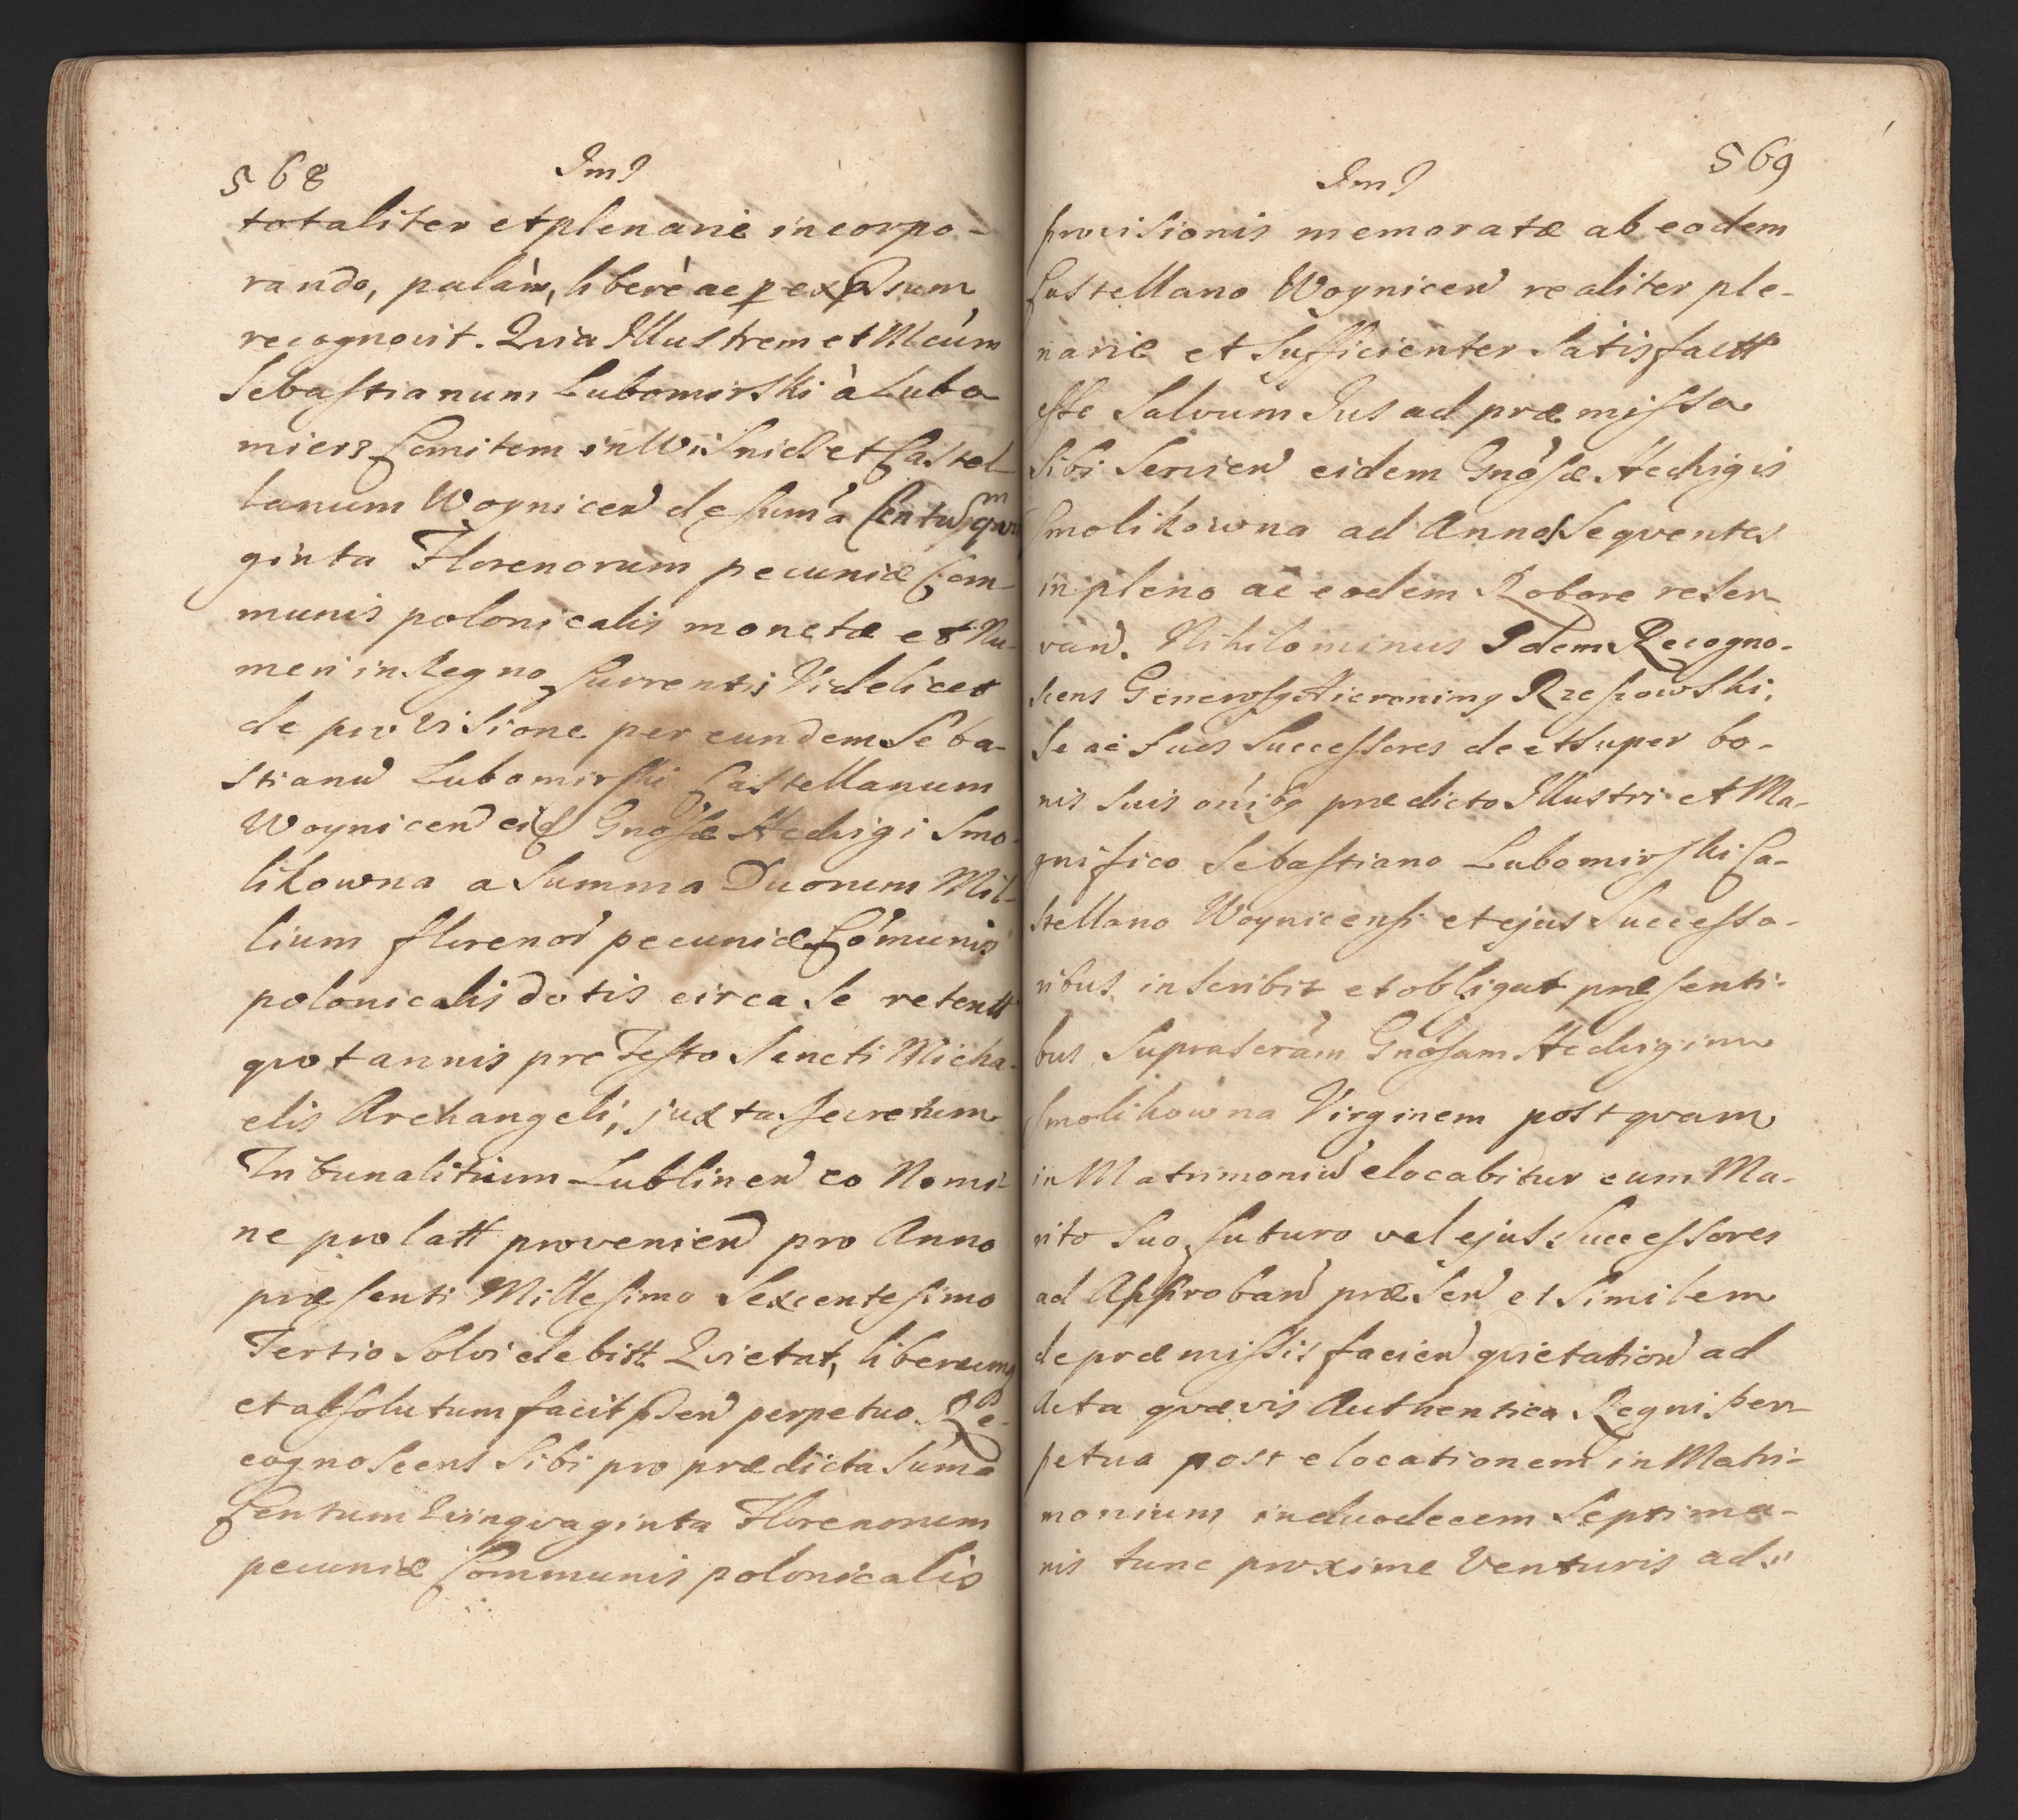 568
JmJ
totaliter et plenarie incorpo-
rando, palàm, liberè ac p expssum
recognovit. Quia Illustrem et Mcum
Sebastianum Lubomirski à Lubo
mierz Comitem in Wisnicz et Castel
lanum Woynicen de suma Centum quin
ginta Florenorum pecuniæ Com-
munis polonicalis monetæ et Nu-
meri in Regno Currentis Videlicet
de provisione per eundem Seba-
stianu Lubomirski Castellanum
Woynicen eid Gnosæ Hedvigi Smo-
likowna a Summa Duorum Mil-
lium florenor pecuniæ Comunis
polonicalis dotis circa se retentt
quotannis pro Festo Sancti Micha-
elis Archangeli, juxta Decretum
Tribunalitium Lublinen eo Nomi-
ne prolatt provenien pro Anno
præsenti Millesimo Sexcentesimo
Tertio solvi debitt Quietat, liberumq
et absolutum facit psen perpetuo. Re-
cognoscens sibi pro prædicta suma
Centum Quinquaginta Florenorum
pecuniæ Communis polonicalis
569
JmJ
provisionis memoratæ ab eodem
Castellano Woynicen realiter ple-
narie et sufficienter satisfactt
esse Salvum Jus ad præmissa
sibi servien eidem Gnosæ Hedvigis
Smolikowna ad Annos sequentes
in pleno ac eodem Robore reser-
van. Nihilominus Idem Recogno-
scens Generosg Hieronimg Rzeszowski,
se ac suos successores de et super bo-
nis suis onibg prædicto Illustri et Ma-
gnifico Sebastiano Lubomirski Ca-
stellano Woynicensi et ejus Successo-
ribus inscribit et obligat præsenti-
bus Suprascram Gnosam Hedvigim
Smolikowna Virginem postquam
in Matrimoniu elocabitur cum Ma-
rito Suo futuro vel ejus Successores
ad Approban præsen et Similem
de præmissis facien quietation ad
Acta quævis Authentica Regni per-
petua post elocationem in Matri-
monium in duodecem Septima-
nis tunc proxime Venturis ad"